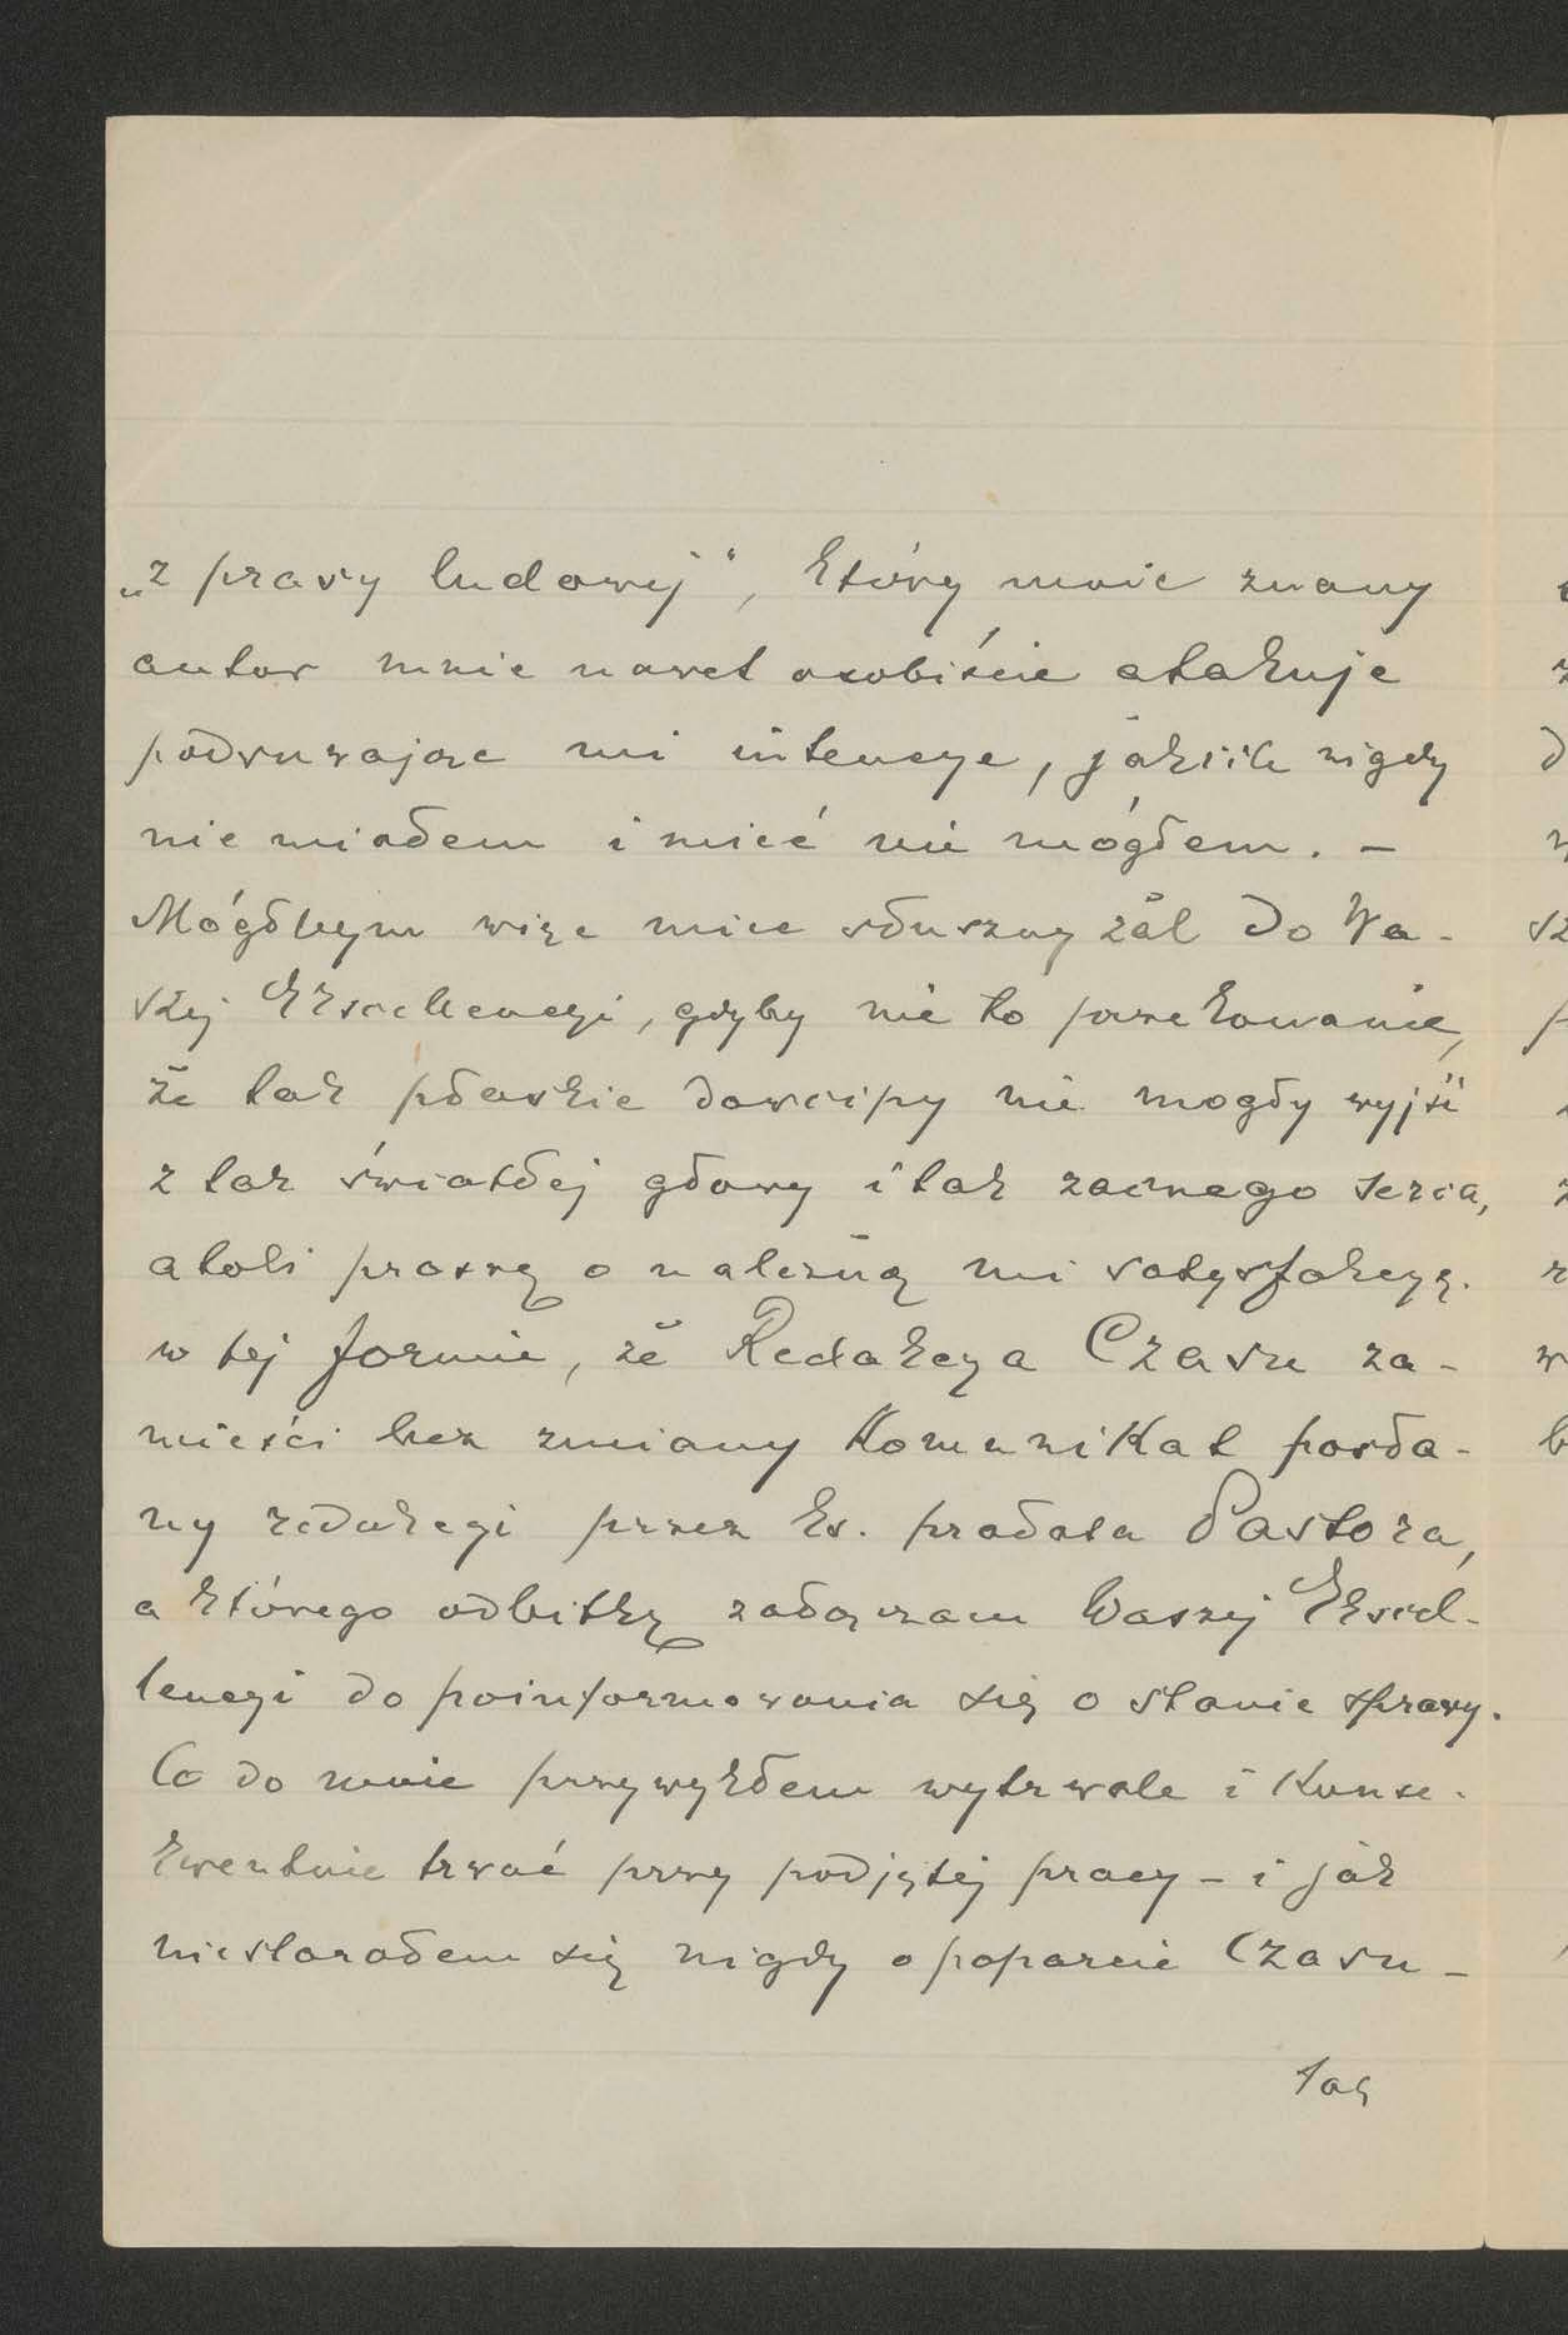 „z prasy ludowej", który mnie znany
autor mnie nawet osobiście atakuje
podsuwając mi intencye, jakich nigdy
nie miałem i mieć nie mógłem. –
Mógłbym więc mieć słuszny żal do Wa-
szej Ekscelencyi, gdyby nie to przekonanie,
że tak płaskie dowcipy nie mogły wyjść
z tak światłej głowy i tak zacnego serca,
atoli proszę o należną mi satysfakcyę.
w tej formie, że Redakcya Czasu za-
mieści bez zmiany Komunikat posła-
ny redakcyi przez ks. prałata Pastora,
a którego odbitkę załączam Waszej Ekscel-
lencyi do poinformowania się o stanie sprawy.
Co do mnie przywykłem wytrwale i Konse-
kwentnie trwać przy podjętej pracy – i jak
niestarałem się nigdy o poparcie Czasu –
tak